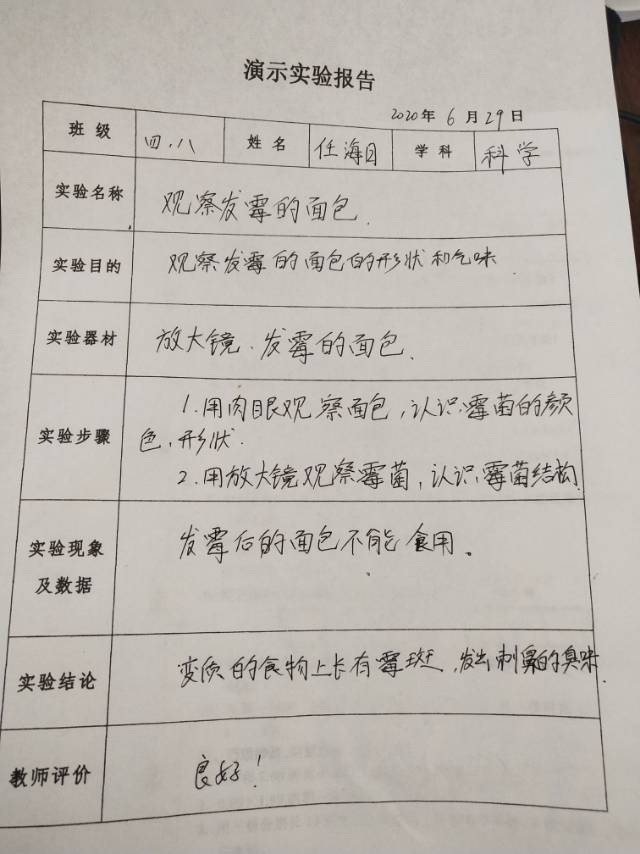 演示实验报告
2020年 6 月 29 日
班 级 四.八 姓 名 任海日 学 科 科学
实验名称 观察发霉的面包.
实验目的 观察发霉的面包的形状和气味
实验器材 放大镜.发霉的面包.
1.用肉眼观察面包,认识霉菌的颜
实验步骤 色,形状.
2.用放大镜观察霉菌,认识霉菌结构.
实验现象 发霉后的面包不能食用。
及数据
实验结论 变质的食物上长有霉斑,发出刺鼻的臭味.
教师评价 良好!